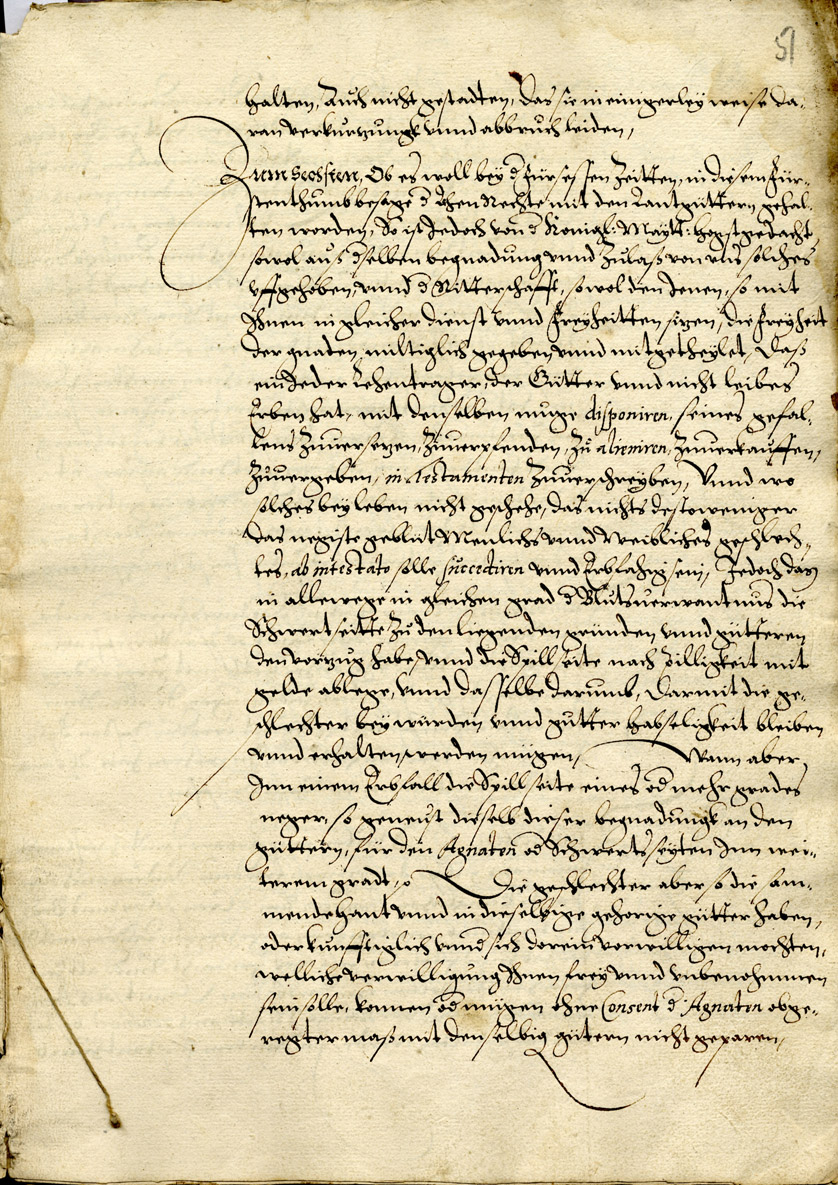 51
halten, Auch nicht gestadten, das sie in einigerley weise da-
ran verkurzungk unnd abbruch leiden,
Zum Sechsten, Ob es woll bey d fürsessen Zeitten, in diesem für-
stenthumb besage d Lehen Rechte mit den Lantgüttern gehal-
ten worden, So ist Jedoch von d Königl: Maytt: hochstgedacht
sowol auß dselben begnadung unnd Zulaß von uns solches
uffgehoben, unnd d Ritterschafft, sowol den Jenen, so mit
Ihnen in gleicher dienst unnd Freyheitten sizen, die Freyheit
der gnaten, miltiglich gegeben unnd mitgetheylet, Daß
ein Jeder Lehentrager, der Gütter unnd nicht leibes
Erben hat, mit denselben muge disponiren, seines gefal-
lens Zuuersezen, Zuuerpfenden, Zu alieniren, Zuuerkauffen,
Zuuergeben, in Testamenten Zuuerschreyben, Unnd wo
solches bey leben nicht geschehe, das nichts destoweniger
das negiste geblüt Menlichs unnd Weibliches geschlech-
tes, ab intestato solle succediren unnd Erbfahig sein, Jedoch das
in allewege in gleichen grad d Blutsverwantnus die
Schwertseitte Zu den liegenden gründen unnd gütteren
den vorzug habe, unnd die Spillseite nach billigkeit mit
gelde ablege, unnd dasselbe darumb, Darmit die ge-
schlechter bey würden unnd gütter habseligkeit bleiben
unnd erhalten werden mügen, Wann aber
Inn einem Erbfall die Spillseite eines od mehr grades
neger, so geneust dieselb dieser begnadungk an den
güttern, für den Agnaten od Schwerts seyten Inn wei-
terem gradt, Die geschlechter aber so die sam-
mende Hant unnd in dieselbige gehorige gütter haben,
oder kunfftiglich unnd sich darein vorwilligen mochten,
welliche verwilligung Ihnen frey unnd unbenohmmen
sein solle, konnen od mügen ohne Consent d Agnaten obge-
regter maß mit denselbig gütern nicht geparen,